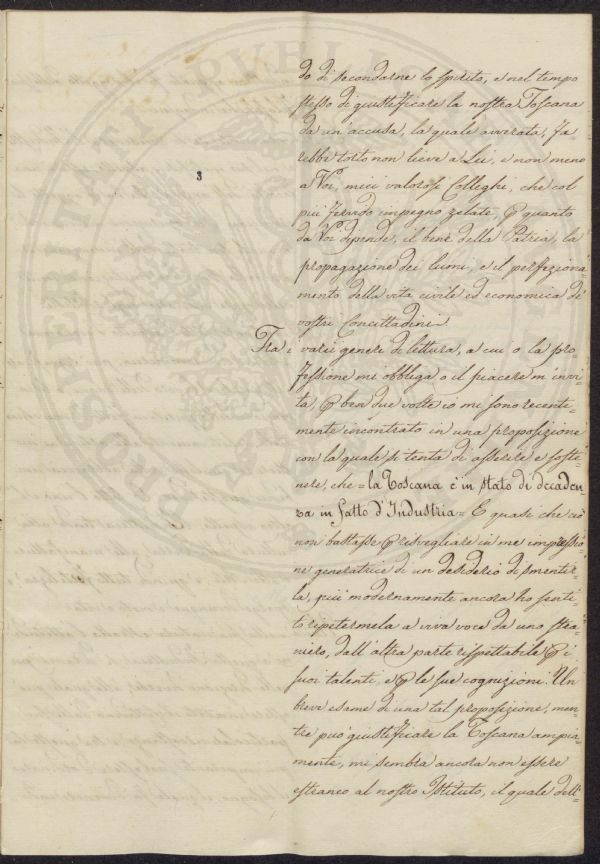 3
do di secondarne lo spirito, e nel tempo
stesso di giustificare la nostra Toscana
da un'accusa, la quale avverata, fa
rebbe torto non lieve a Lei, e non meno
a Voi, miei valorosi Colleghi, che col
più fervido impegno zelate, P quanto
da Voi dipende, il bene della Patria, la
propagazione dei lumi, e il perfeziona=
mento della vita civile ed economica de'
vostri Concittadini.
Tra i varii generi di lettura, a cui o la pro=
fessione mi obbliga, o il piacere m'invi=
ta, P ben due volte io mi sono recente=
mente incontrato in una proposizione
con la quale si tenta di asserire e soste=
nere, che = la Toscana è in stato di decaden=
za in fatto d'Industria = E quasi che ciò
non bastasse P risvegliare in me impressio=
ne generatrice di un desiderio di smentir=
la, più modernamente ancora ho senti=
to ripetermela a viva voce da uno stra=
niero, dall'altra parte rispettabile P i
suoi talenti, e P le sue cognizioni. Un
breve esame di una tal proposizione, men=
tre può giustificare la Toscana ampia=
mente, mi sembra ancora non essere
estraneo al nostro Istituto, il quale dell'
PROSPERITATI PUBLICAE